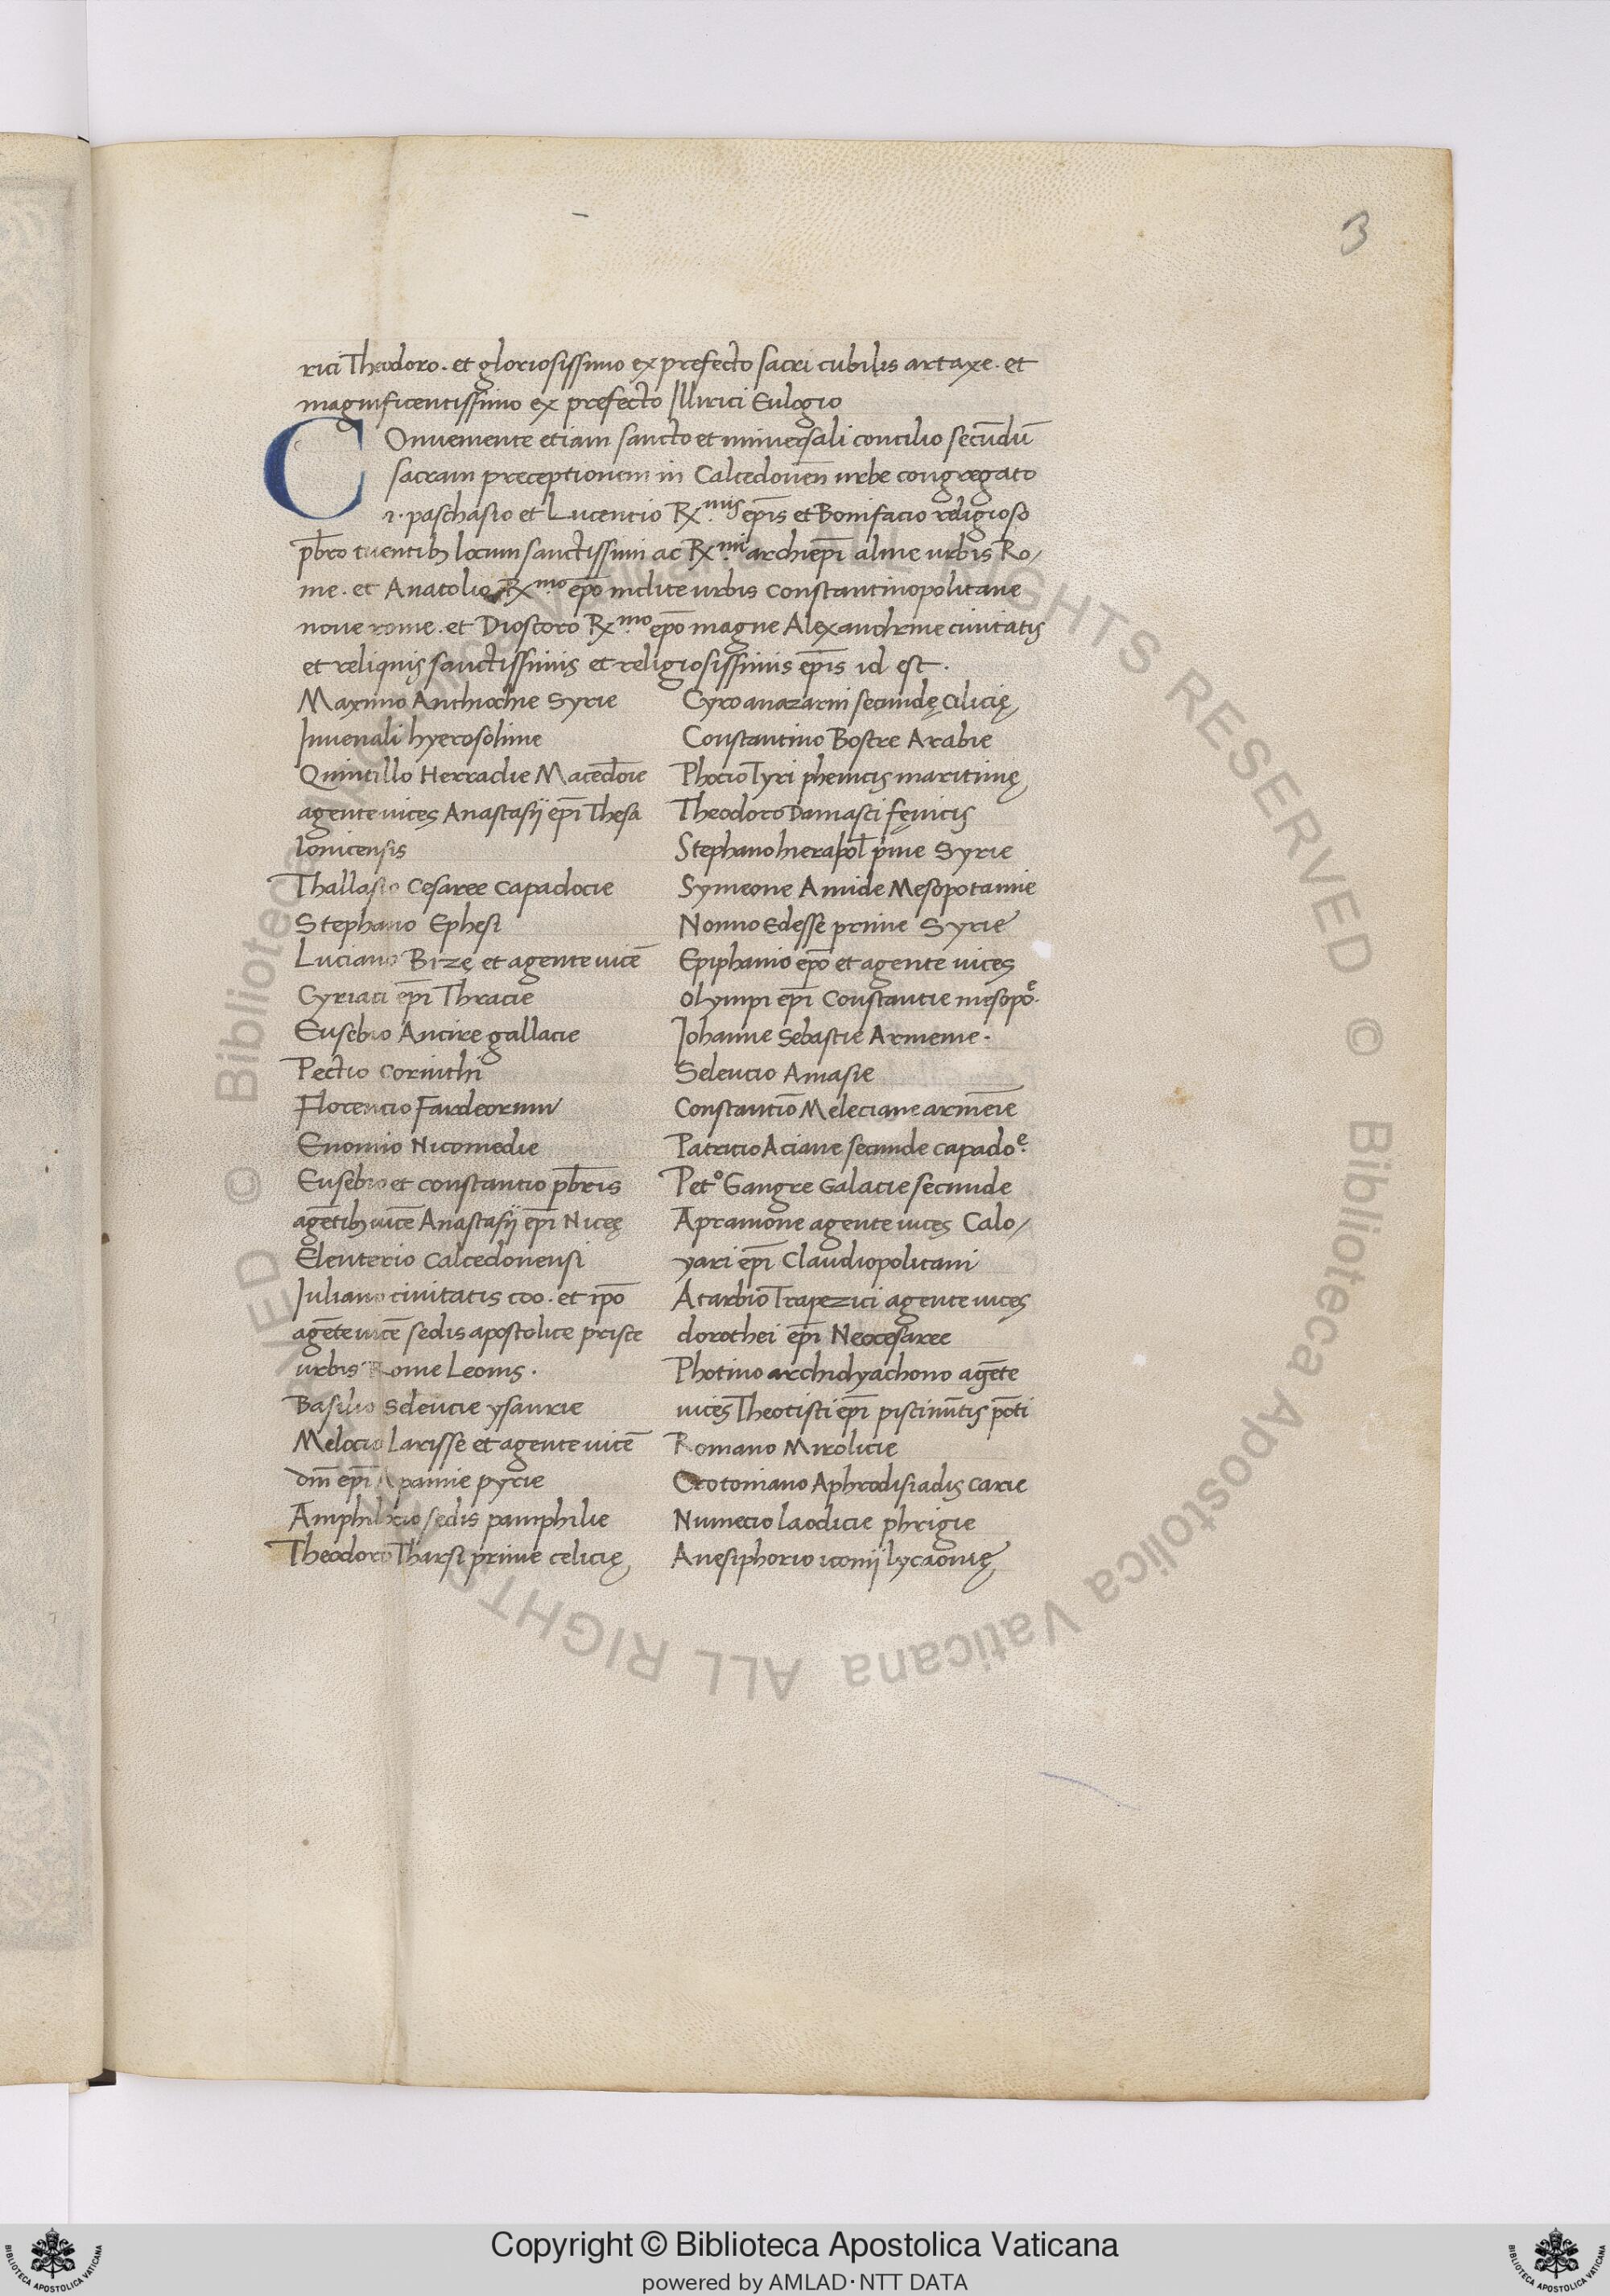 3
rici Theodoro. et gloriosissimo ex prefecto sacri cubilis artaxe. et
magnificentissimo ex prefecto Illirici Eulogio
COnueniente etiam sancto et uniuersali concilio secūdū
sacram preceptionem in Calcedoneñ urbe congregato
1. paschasio et Lucencio R̃.mis ep̄is et Bonifacio religioso
pb̄ro tuentib; locum sanctissimi ac R̃.mi archiep̄i alme urbis Ro/
me. et Anatolio R̃.mo ep̄o inclite urbis constantinopolitane
noue rome. et Dioscoro R̃.mo ep̄o magne Alexandrine ciuitatis
et reliquis sanctissimis et religiosissimis ep̄is id est.
Maximo Anthiochie Syrie
Iuuenali hyerosolime
Quintillo Herradie Maced̄oie
agente uices Anastasij ep̄i Thesa
lonicensis
Thallasio Cesaree Capadocie
Stephano Ephesi
Luciano Bizę et agente uicē
Cyriaci ep̄i Thracie
Eusebio Ancire gallacie
Pectio Corinthi
Florencio Fardeorum
Enomio Nicomedie
Eusebio et constancio pb̄ris
agētib; uicē Anastasij ep̄i Nicę
Elenterio Calcedonensi
Iuliano ciuitatis coo. et ip̄o
agēte uicē sedis apostolice prisce
urbis Rome Leonis.
Basilio Seleucie ysaurie
Melocio Larisse et agente uicē
dm̄ ep̄i Apamie pyrie
Amphilocio sedis pamphilie
Theodoro Tharsi prime celicię
Cyro anazarni secundę Cilicię
Constantino Bostre Arabie
Phocio Tyri phenicis maritimę
Theodoro Damasci fęnicis
Stephano hierapol̄ p̄me Syrie
Symeone Amide Mesopotamie
Nonno Edesse prime Syrie
Epiphanio ep̄o et agente uices
Olympi ep̄i Constancie mesopo.e
Iohanne Sebastie Armenie.
Seleucio Amasie
Constantiō Meleciane armēie
Patricio Aciane secunde capado.e
Peto Gangre Galacie secunde
Apramone agente uices Calo/
yari ep̄i Claudiopolitani
Atarbiō Trapezici agente uices
dorothei ep̄i Neocesaree
Photino archidyachono agēte
uices Theotisti ep̄i piscinūtis pōti
Romano Mirolicie
Crotoniano Aphrodisiadis carie
Numecio laodicie phrigie
Anesiphorio iconij lycaonię
© Biblioteca Apostolica Vaticana ALL RIGHTS RESERVED © Biblioteca Apostolica Vaticana ALL RIGHTS RESERVED
Copyright © Biblioteca Apostolica Vaticana
powered by AMLAD·NTT DATA
BIBLIOTECA APOSTOLICA VATICANA
BIBLIOTECA APOSTOLICA VATICANA